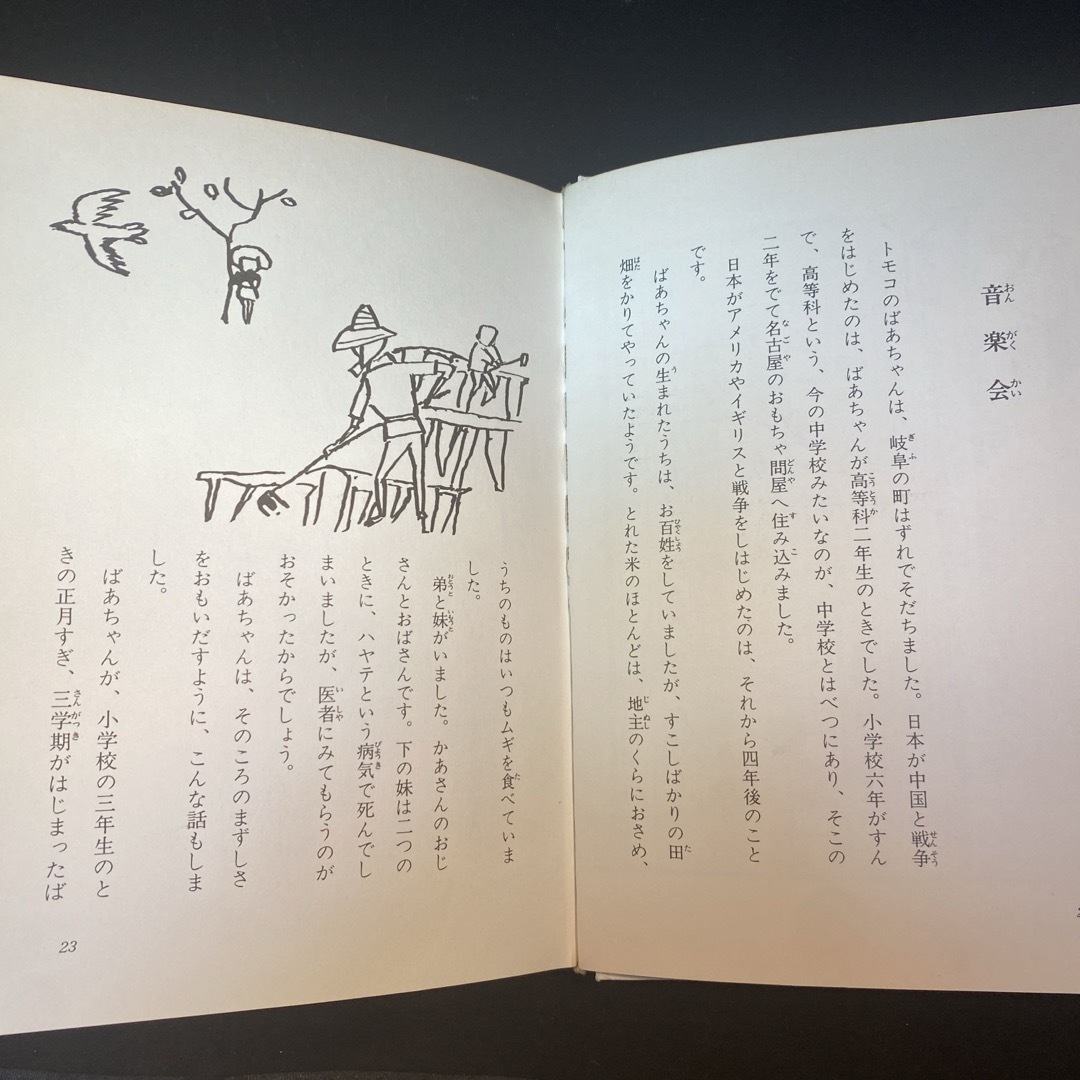 音楽会
トモコのばあちゃんは、岐阜の町はずれでそだちました。日本が中国と戦争
をはじめたのは、ばあちゃんが高等科二年生のときでした。小学校六年がすん
で、高等科という、今の中学校みたいなのが、中学校とはべつにあり、そこの
二年をでて名古屋のおもちゃ問屋へ住み込みました。
日本がアメリカやイギリスと戦争をしはじめたのは、それから四年後のこと
です。
ばあちゃんの生まれたうちは、お百姓をしていましたが、すこしばかりの田
畑をかりてやっていたようです。とれた米のほとんどは、地主のくらにおさめ、
うちのものはいつもムギを食べていま
した。
弟と妹がいました。かあさんのおじ
さんとおばさんです。下の妹は二つの
ときに、ハヤテという病気で死んでし
まいましたが、医者にみてもらうのが
おそかったからでしょう。
ばあちゃんは、そのころのまずしさ
をおもいだすように、こんな話もしま
した。
ばあちゃんが、小学校の三年生のと
きの正月すぎ、三学期がはじまったば
23